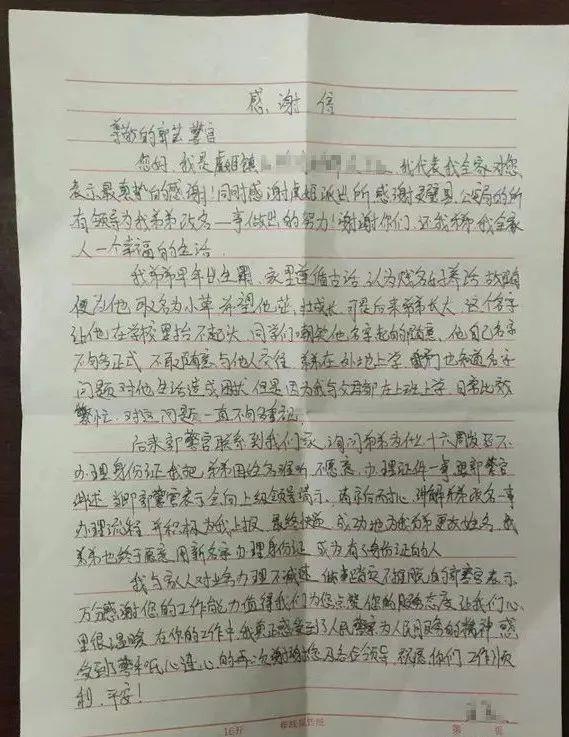 感谢信
尊敬的郭芸警官
您好，我是虞姬镇 我代表我全家对您
表示最真挚的感谢！同时感谢虞姬派出所，感谢灵璧县公安局的所
有领导为我弟弟改名一事做出的努力！谢谢你们，还我弟弟我全家
人一个幸福的生活。
我弟弟早年出生时，家里遵循古话，认为贱名好养活，故随
便为他取名为小草，希望他茁壮成长，可是后来弟弟长大，这个名字
让他在学校里抬不起头，同学们嘲笑他名字起的随意，他自己名字
不够正式，不敢随意与他人交往，弟弟在外地上学，我们也知道名字
问题对他生活造成困扰，但是因为我与父母都在上班上学，日常比较
繁忙，对这问题一直不够重视。
后来郭警官联系到我们家，询问弟弟为什么十六周岁还不
办理身份证，我把弟弟因姓名难听不愿意办理证件一事跟郭警官
讲述，当即郭警官表示会向上级领导请示，请示后耐心讲解弟弟改名一事
办理流程，并积极为我上报，最终快速成功地为我弟弟更改姓名，我
弟弟也终于愿意用新名字办理身份证，成为有身份证的人
我与家人对业务办理不减速，做事踏实不推脱的郭警官表示
万分感谢，您的工作能力值得我们为您点赞，您的服务态度让我们心
里很温暖，在你的工作中，我真正感受到了人民警察为人民服务的精神，感
受到了警和民心连心的，再次谢谢您及各位领导，祝愿你们工作顺
利，平安！
16开
第 页